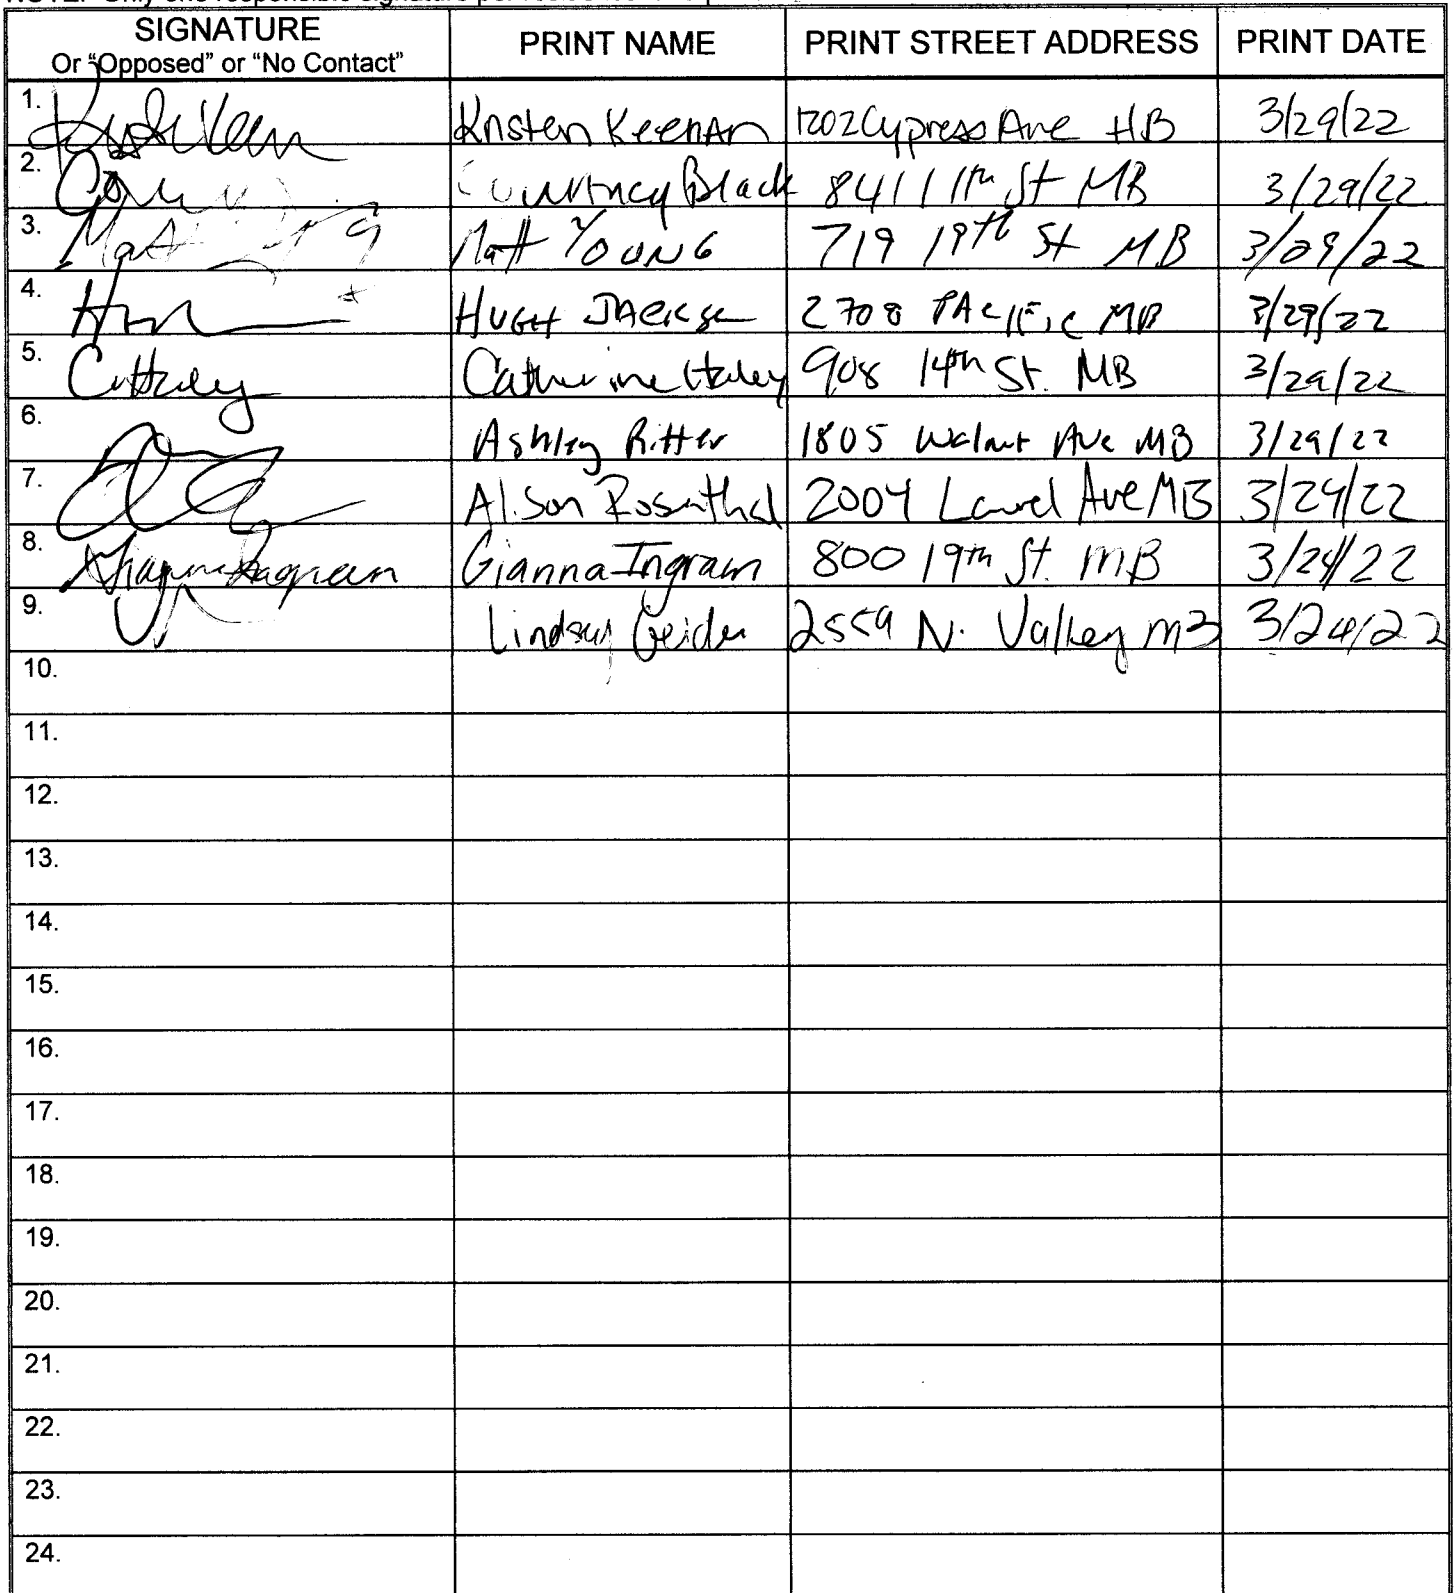 SIGNATURE PRINT NAME PRINT STREET ADDRESS PRINT DATE
Or "Opposed" or "No Contact"
1. Kristen Keenan 1202 Cypress Ave HB 3/29/22
2. Courtney Black 841 11th St MB 3/29/22
3. Matt Young Matt YOUNG 719 19th St MB 3/29/22
4. HUGH JACKSON 2708 PACIFIC MB 3/29/22
5. Catherine Haley 908 14th St. MB 3/29/22
6. Ashley Ritter 1805 Walnut Ave MB 3/29/22
7. Alison Rosenthal 2004 Laurel Ave MB 3/29/22
8. Gianna Ingram Gianna Ingram 800 19th St. MB 3/29/22
9. Lindsay 2559 N. Valley MB 3/24/22
10.
11.
12.
13.
14.
15.
16.
17.
18.
19.
20.
21.
22.
23.
24.